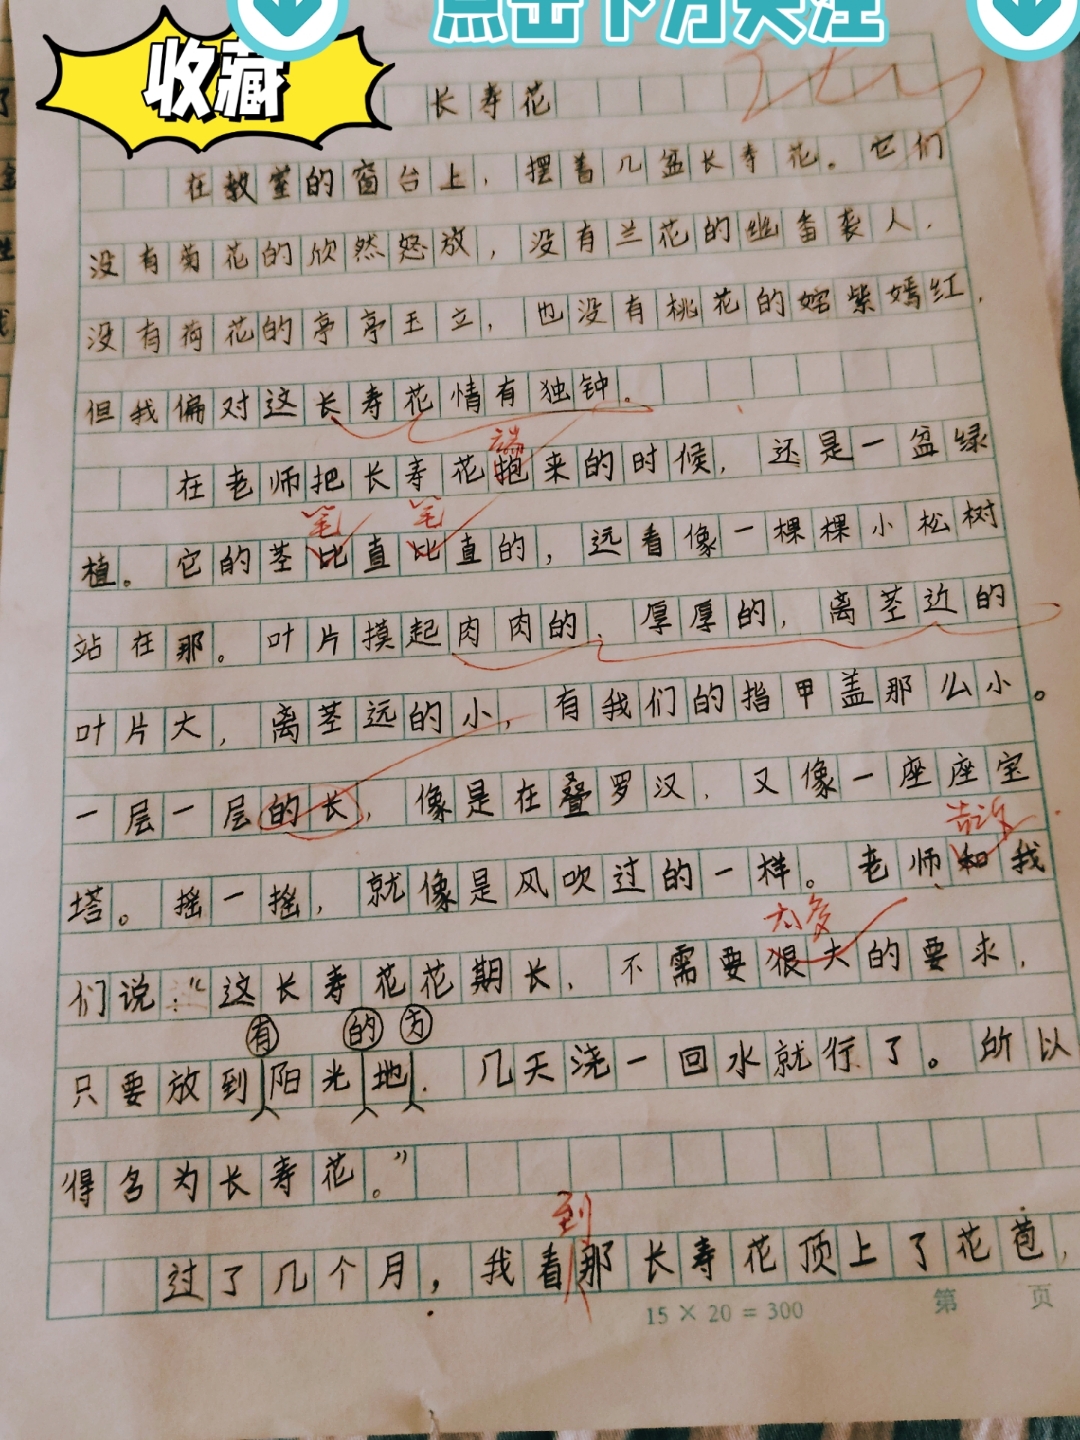 点击下方关注
收藏
长寿花
在教室的窗台上，摆着几盆长寿花。它们
没有菊花的欣然怒放，没有兰花的幽香袭人，
没有荷花的亭亭玉立，也没有桃花的姹紫嫣红，
但我偏对这长寿花情有独钟。
端
在老师把长寿花抱来的时候，还是一盆绿
笔 笔
植。它的茎比直比直的，远看像一棵棵小松树
站在那。叶片摸起肉肉的、厚厚的，离茎近的
叶片大，离茎远的小，有我们的指甲盖那么小。
一层一层的长，像是在叠罗汉，又像一座座宝
告诉
塔。摇一摇，就像是风吹过的一样。老师和我
太多
们说：“这长寿花花期长，不需要很大的要求，
有 的 方
只要放到阳光地，几天浇一回水就行了。所以
得名为长寿花。”
到
过了几个月，我看那长寿花顶上了花苞，
15×20=300 第 页